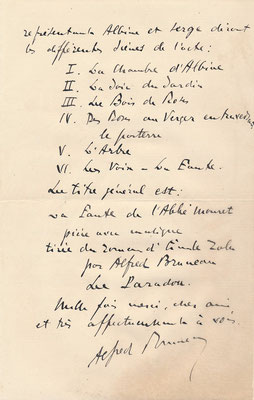 représentants Albine et Serge disent
les différentes scènes de l'acte :
I. La Chambre d'Albine
II. La Joie du Jardin
III. Le Bois de Roses
IV. Des Bois au Verger en traversant
le parterre
V. L'Arbre
VI. Les Voix – La Faute.
Le titre général est :
La Faute de l'Abbé Mouret
pièce avec musique
tirée du roman d'Émile Zola
par Alfred Bruneau
Le Paradou.
Mille fois merci, cher ami
et très affectueusement à vous.
Alfred Bruneau